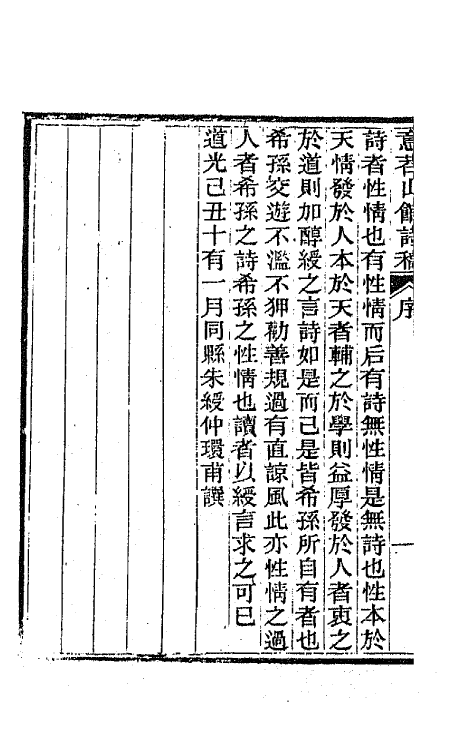 意苕山館詩稿 序 一
詩者性情也有性情而后有詩無性情是無詩也性本於
天情發於人本於天者輔之於學則益厚發於人者衷之
於道則加醇綬之言詩如是而已是皆希孫所自有者也
希孫交遊不濫不狎勸善規過有直諒風此亦性情之過
人者希孫之詩希孫之性情也讀者以綬言求之可已
道光己丑十有一月同縣朱綬仲環甫譔